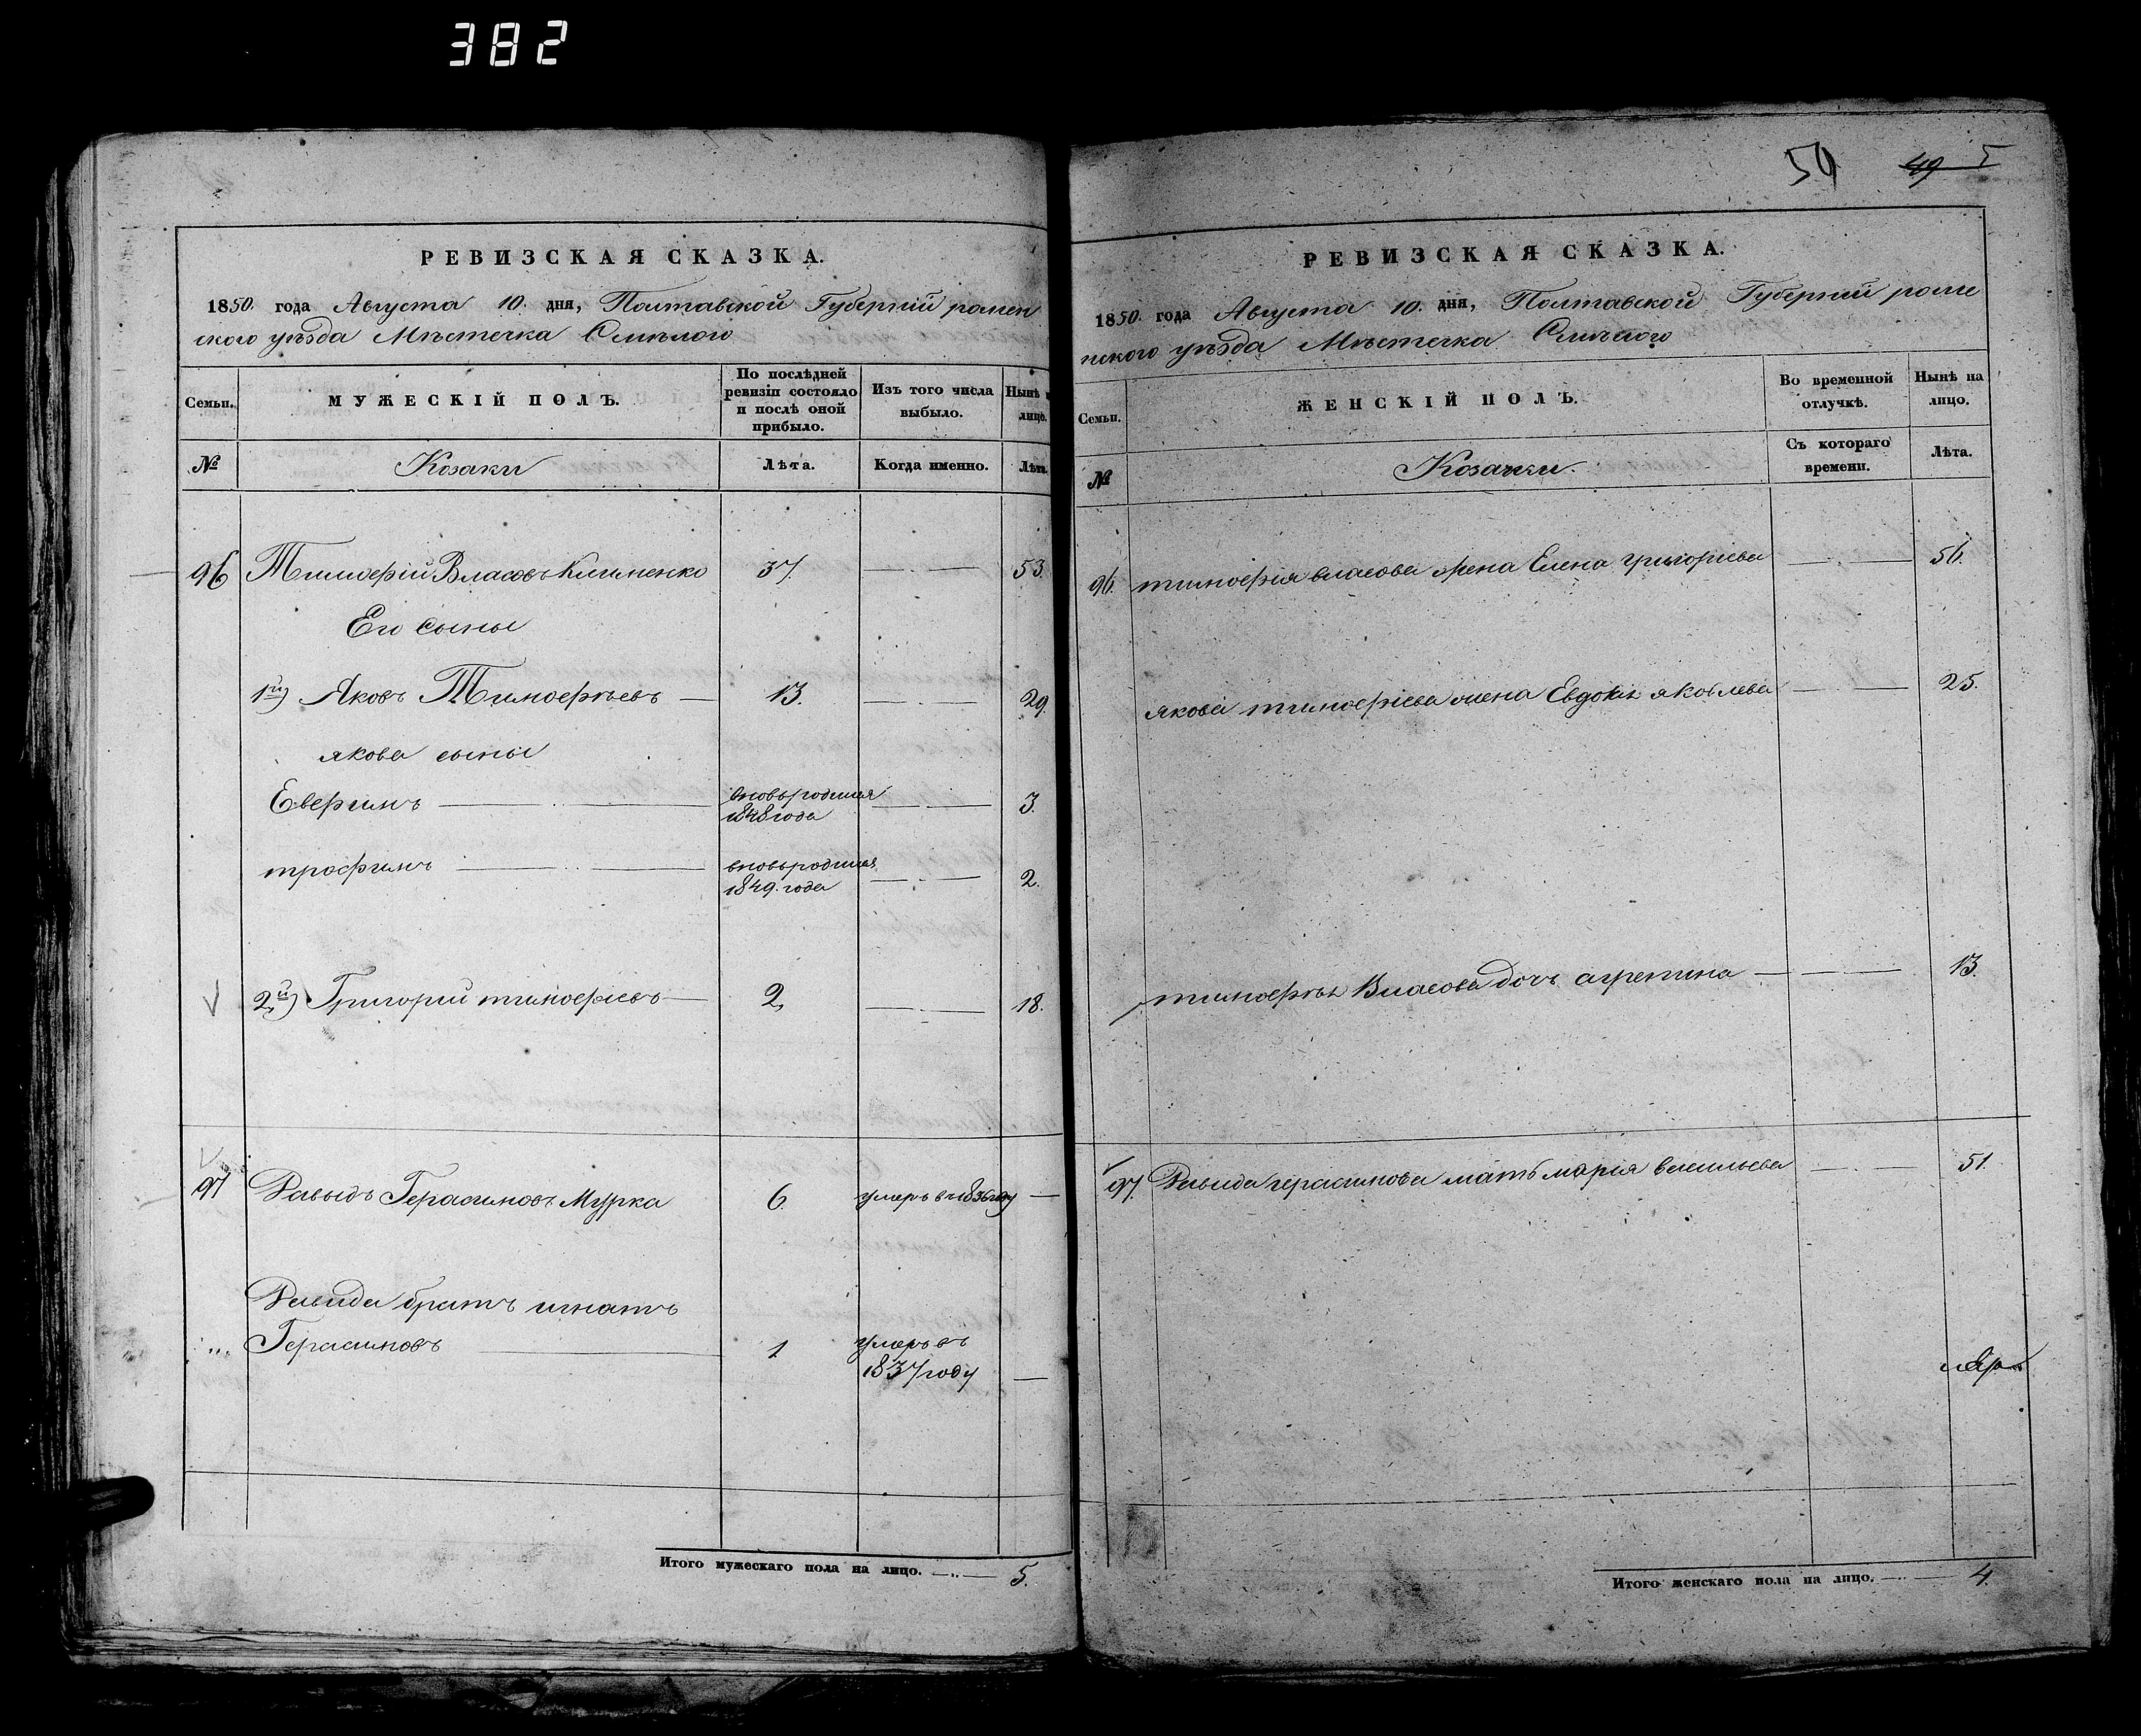 382
РЕВИЗСКАЯ СКАЗКА.
1850. года Августа 10. дня, Полтавской Губерній ромен
ского уѣзда Мѣстечка Смѣлого
Семьи.
МУЖЕСКІЙ ПОЛЪ.
По послѣдней
ревизіи состояло
и послѣ оной
прибыло.
Изъ того числа
выбыло.
Нынѣ
лицо.
№
Козаки
Лѣта.
Когда именно.
Лѣта
96 Тимофій Власовъ Клименко 37. 53.
Его Сыны
1й) Яковъ Тимофѣевъ 13. 29.
якова сыны
Евгриъ вновьродился 1848 года 3.
трофимъ вновьродился 1849. года 2.
2й) Григорий тимофіевъ 2, 18.
97 Давыдъ Герасимовъ Мурка 6. умеръ въ 1836 году
Давида братъ игнатъ
Герасимовъ 1 умеръ въ
1837 году
Итого мужескаго пола на лицо. 5.
50 49 5
РЕВИЗСКАЯ СКАЗКА.
1850. года Августа 10. дня, Полтавской Губерній роме
нского уѣзда Мѣстечка Смѣлого
Семьи.
ЖЕНСКІЙ ПОЛЪ.
Во временной
отлучкѣ.
Нынѣ на
лицо.
№
Козачки.
Съ котораго
времени.
Лѣта.
96. тимофія власова жена Елена григоріева 56.
якова тимофіева жена Евдокія яковлева 25.
тимофѣя Власова дочъ агрепина 13.
97. Давида герасимова мать мария васильева 51.
Итого женскаго пола на лицо. 4.